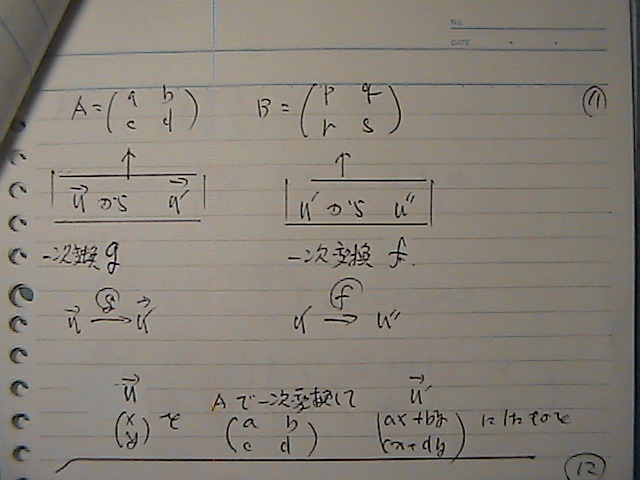 NO.
DATE
A = (a b c d) B = (p q r s) ⑪
u⃗ から u⃗' u' から u''
一次変換 g 一次変換 f.
u⃗ →(g) u⃗' u' →(f) u''
u⃗ Aで一次変換して u⃗'
(x y) を (a b c d) (ax+by cx+dy) にしたものを
⑫